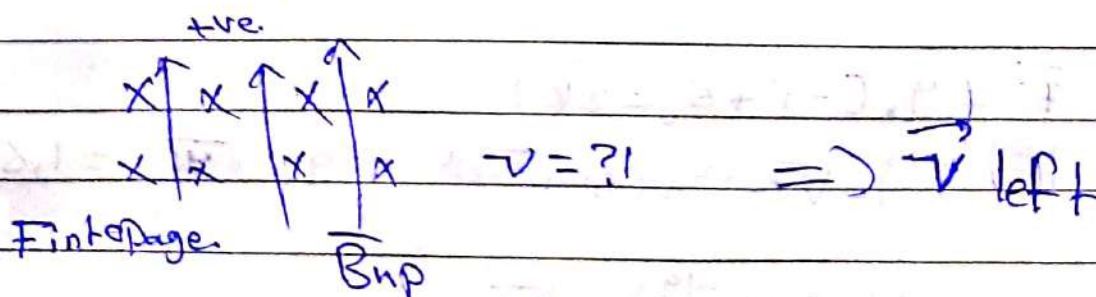 +ve.
X X X X
X X X X v = ?! => v left
F into Page.
B up